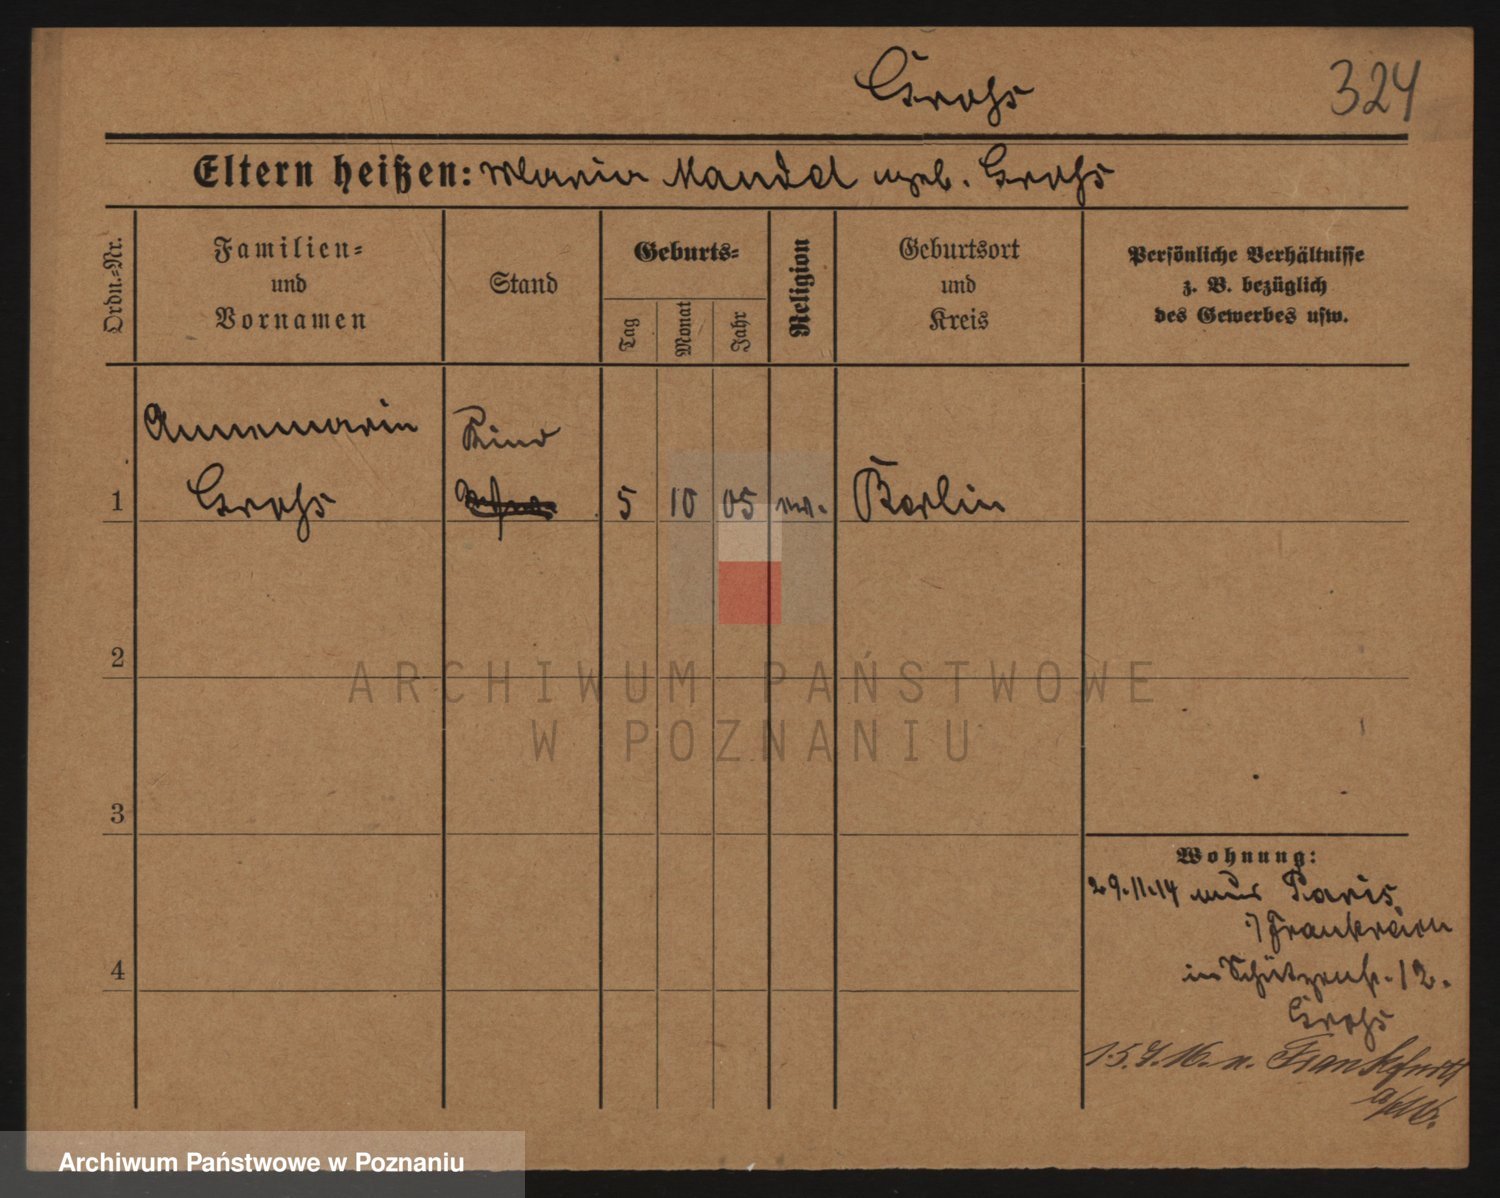 Grohs
324
Eltern heißen: Maria Mandel geb. Grohs
Ordn.-Nr.
Familien-
und
Vornamen
Stand
Geburts-
Tag
Monat
Jahr
Religion
Geburtsort
und
Kreis
Persönliche Verhältnisse
z. B. bezüglich
des Gewerbes usw.
Annemarie Kind
1 Grohs 5 10 05 ev. Berlin
2
3
4
Wohnung:
29.11.14 aus Paris
Frankreich
in Schützenstr. 12.
Grohs
15.7.16. n. Frankfurt
a/M.
ARCHIWUM PAŃSTWOWE
W POZNANIU
Archiwum Państwowe w Poznaniu